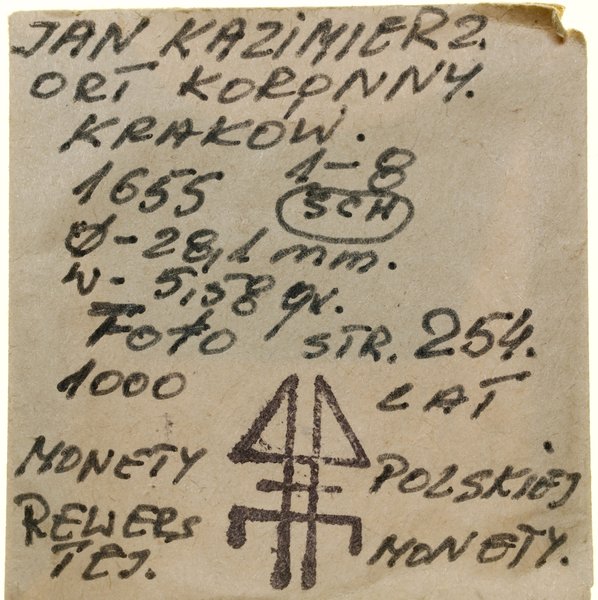 JAN KAZIMIERZ.
ORT KORONNY.
KRAKOW.
1655 1-8
SCH
Ø - 28,1 mm.
W - 5,58 gr.
Foto STR. 254.
1000 LAT
MONETY POLSKIEJ
REWERS MONETY.
TEJ.